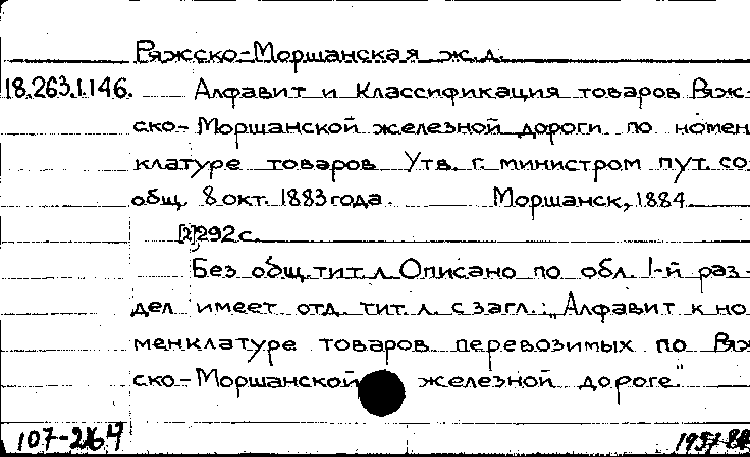 Ряжско-Моршанская ж.д.
18.263.1.146. Алфавит и классификация товаров Ряж-
ско-Моршанской железной дороги по номен
клатуре товаров Утв. г. министром пут. со
общ. 8 окт. 1883 года. Моршанск, 1884.
[2] 292 с.
Без общ. тит. л. Описано по обл. 1-й раз-
дел имеет отд. тит. л. с загл.: "Алфавит к но
менклатуре товаров перевозимых по Ряж
ско-Моршанской железной дороге."
107-264